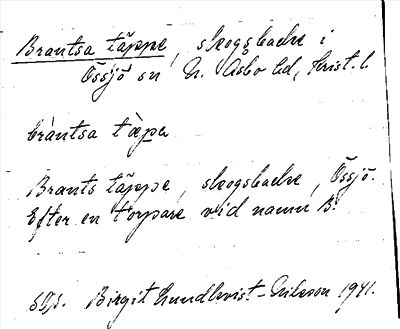 Brantsa täppe, skogsbacke i
Össjö sn N. Åsbo hd, Krist. l.
bràntsa tæpə
Brants täppe, skogsbacke, Össjö.
Efter en torpare vid namn B.
Birgit Lundkvist-Nilsson 1941.